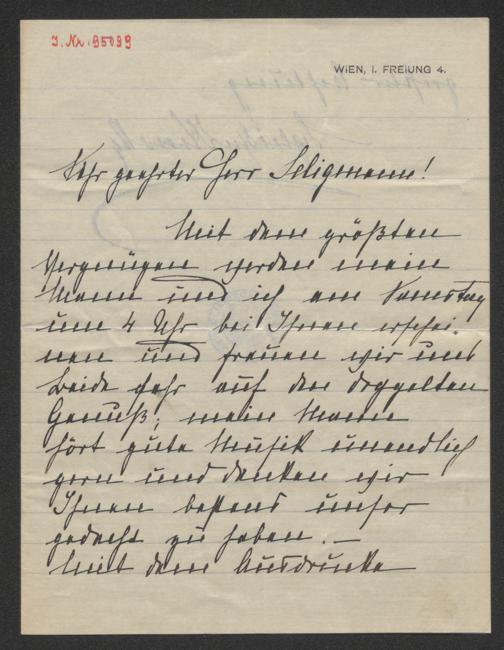 J. Nr. 95099
WIEN, I. FREIUNG 4.
Sehr geehrter Herr Seligmann!
Mit dem größten
Vergnügen werden mein
Mann und ich am Samstag
um 4 Uhr bei Ihnen erschei-
nen und freuen wir uns
beide sehr auf den doppelten
Genuß; mein Mann
hört gute Musik unendlich
gern und danken wir
Ihnen bestens unser
gedacht zu haben. —
Mit dem Ausdrucke